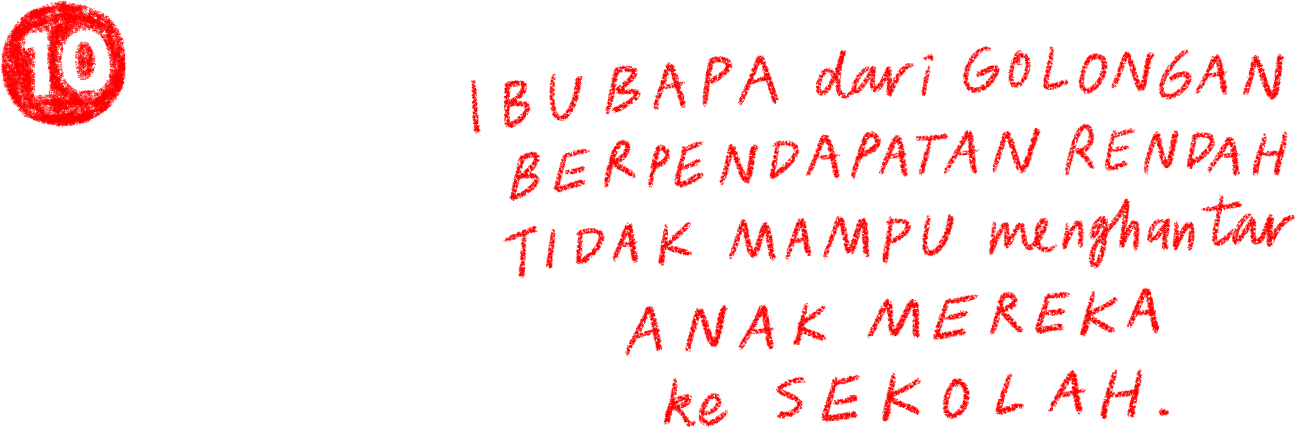 10
IBU BAPA dari GOLONGAN
BERPENDAPATAN RENDAH
TIDAK MAMPU menghantar
ANAK MEREKA
ke SEKOLAH.